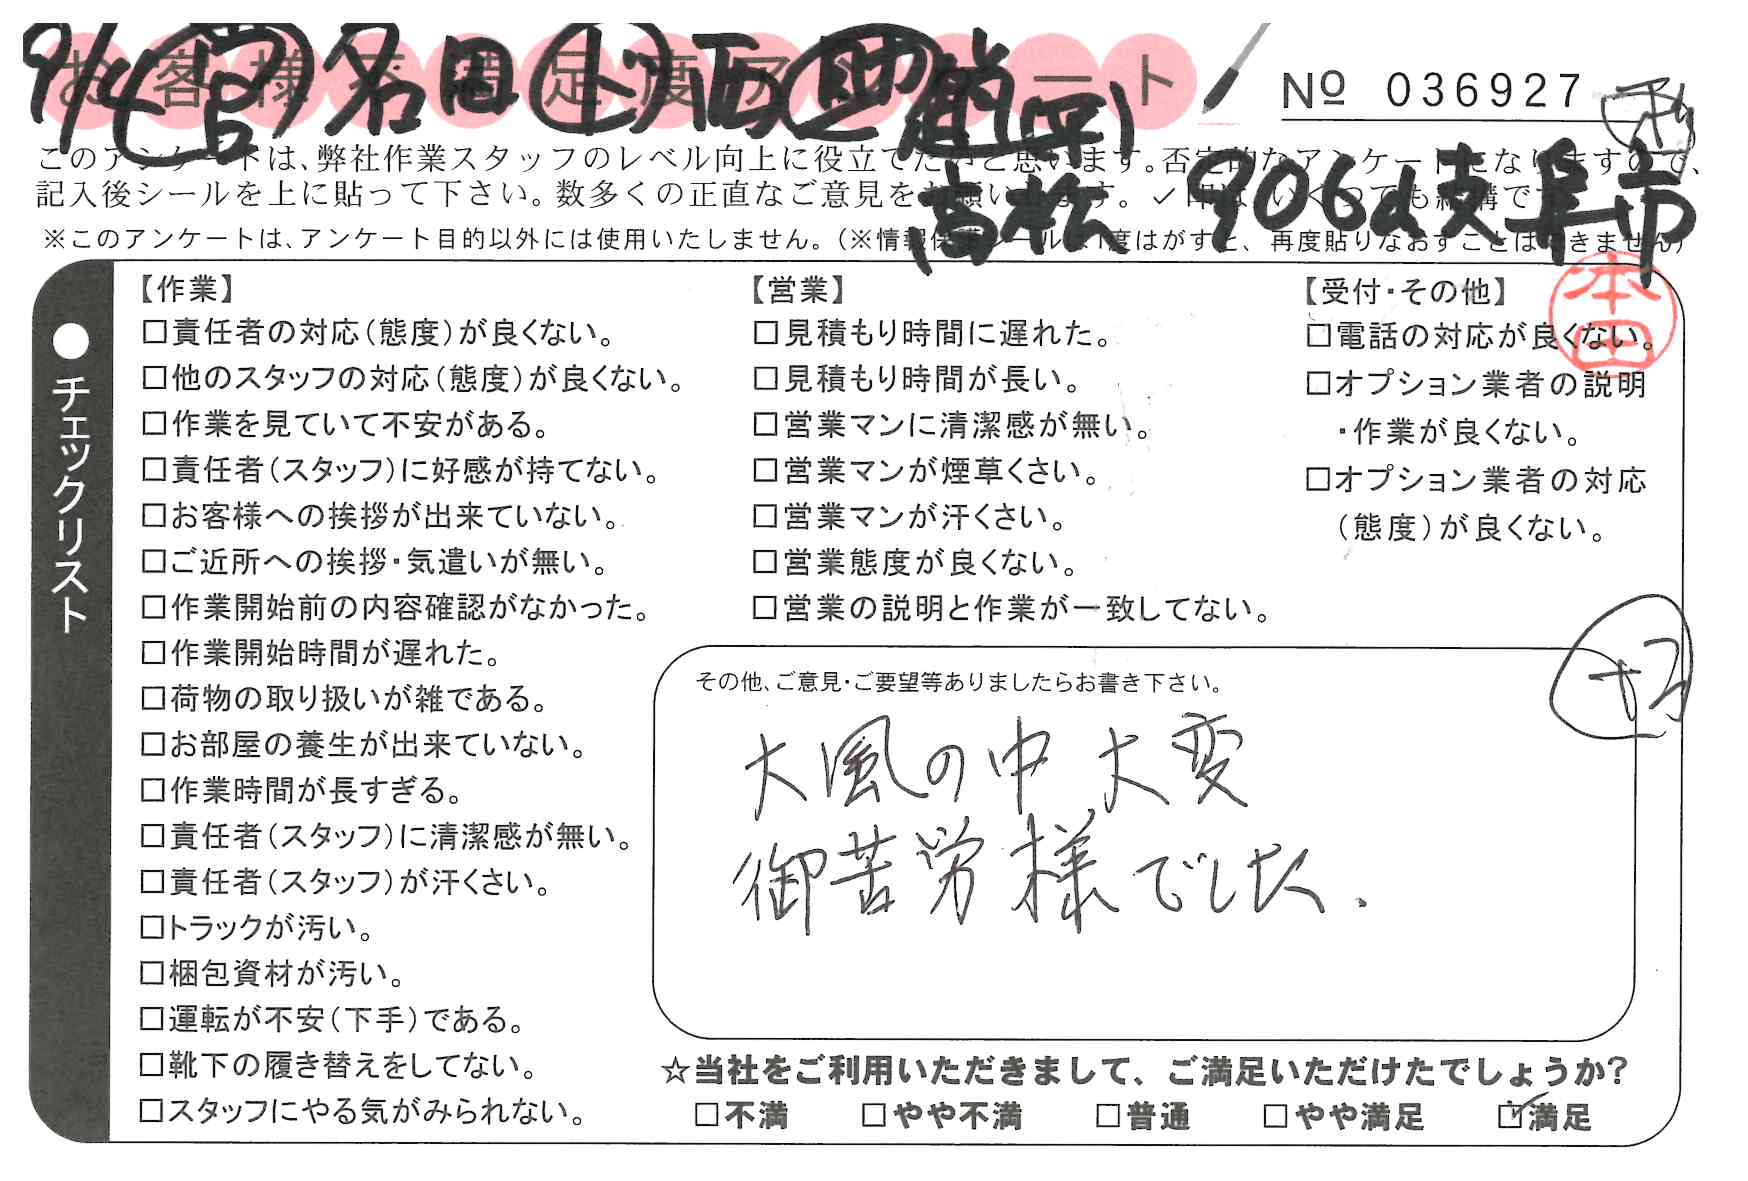 お客様不満足度アンケート
№ 036927
このアンケートは、弊社作業スタッフのレベル向上に役立てたいと思います。否定的なアンケートになりますので、
記入後シールを上に貼って下さい。数多くの正直なご意見をお願いします。✓印は、いくつでも結構です。
※このアンケートは、アンケート目的以外には使用いたしません。(※情報保護シールは1度はがすと、再度貼りなおすことはできません)
高松 906 岐阜市
本田
●チェックリスト
【作業】
□責任者の対応(態度)が良くない。
□他のスタッフの対応(態度)が良くない。
□作業を見ていて不安がある。
□責任者(スタッフ)に好感が持てない。
□お客様への挨拶が出来ていない。
□ご近所への挨拶・気遣いが無い。
□作業開始前の内容確認がなかった。
□作業開始時間が遅れた。
□荷物の取り扱いが雑である。
□お部屋の養生が出来ていない。
□作業時間が長すぎる。
□責任者(スタッフ)に清潔感が無い。
□責任者(スタッフ)が汗くさい。
□トラックが汚い。
□梱包資材が汚い。
□運転が不安(下手)である。
□靴下の履き替えをしてない。
□スタッフにやる気がみられない。
【営業】
□見積もり時間に遅れた。
□見積もり時間が長い。
□営業マンに清潔感が無い。
□営業マンが煙草くさい。
□営業マンが汗くさい。
□営業態度が良くない。
□営業の説明と作業が一致してない。
【受付・その他】
□電話の対応が良くない。
□オプション業者の説明
・作業が良くない。
□オプション業者の対応
(態度)が良くない。
その他、ご意見・ご要望等ありましたらお書き下さい。
大風の中 大変
御苦労様でした.
☆当社をご利用いただきまして、ご満足いただけたでしょうか?
□不満 □やや不満 □普通 □やや満足 ☑満足